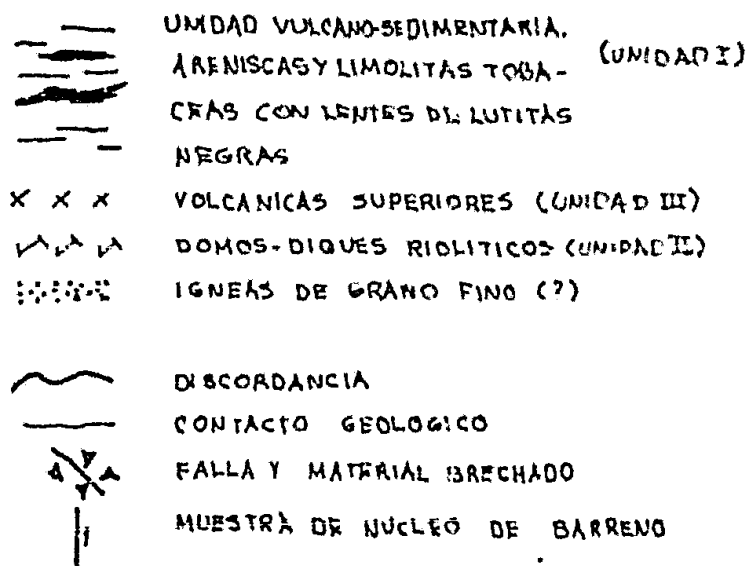 UNIDAD VULCANO-SEDIMENTARIA.
(UNIDAD I)
ARENISCAS Y LIMOLITAS TOBA-
CEAS CON LENTES DE LUTITAS
NEGRAS
VOLCANICAS SUPERIORES (UNIDAD III)
DOMOS-DIQUES RIOLITICOS (UNIDAD II)
IGNEAS DE GRANO FINO (?)
DISCORDANCIA
CONTACTO GEOLOGICO
FALLA Y MATERIAL BRECHADO
MUESTRA DE NUCLEO DE BARRENO